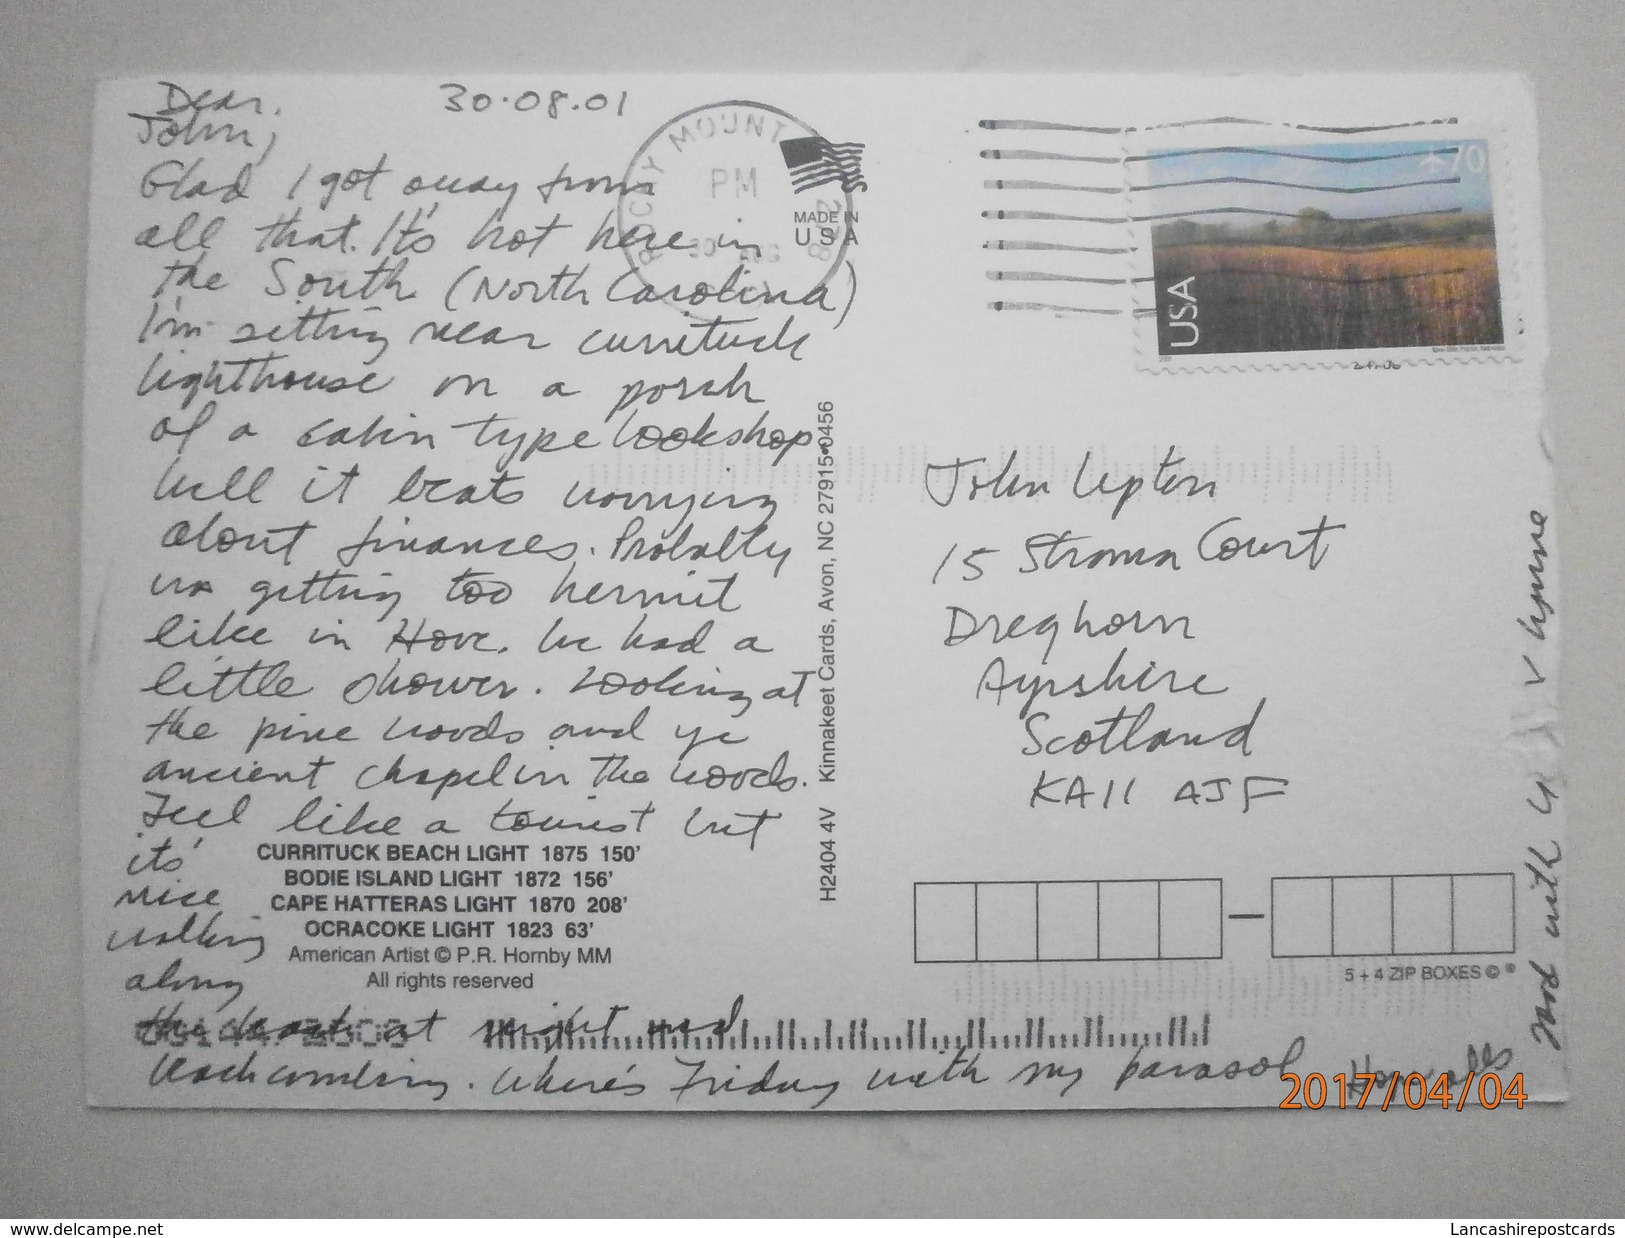 Dear.
30.08.01
John,
Glad I got away from
all that. It's hot here in
the South (North Carolina)
I'm sitting near currituck
lighthouse on a porch
of a cabin type bookshop
well it beats worrying
about finances. Probably
was getting too hermit
like in Hove. We had a
little shower. Looking at
the pine woods and ye
ancient chapel in the woods.
Feel like a tourist but
its'
nice
walking
along
the beach at night and
beachcombing. Where's Friday with my parasol
Hope alls
And with U v Lynne
ROCKY MOUNT
PM
30 AUG
MADE IN
U S A
70
USA
John Lupton
15 Stroma Court
Dreghorn
Ayrshire
Scotland
KA11 4JF
H2404 4V Kinnakeet Cards, Avon, NC 27915-0456
CURRITUCK BEACH LIGHT 1875 150'
BODIE ISLAND LIGHT 1872 156'
CAPE HATTERAS LIGHT 1870 208'
OCRACOKE LIGHT 1823 63'
American Artist © P.R. Hornby MM
All rights reserved
5 + 4 ZIP BOXES © ®
2017/04/04
www.delcampe.net
Lancashirepostcards